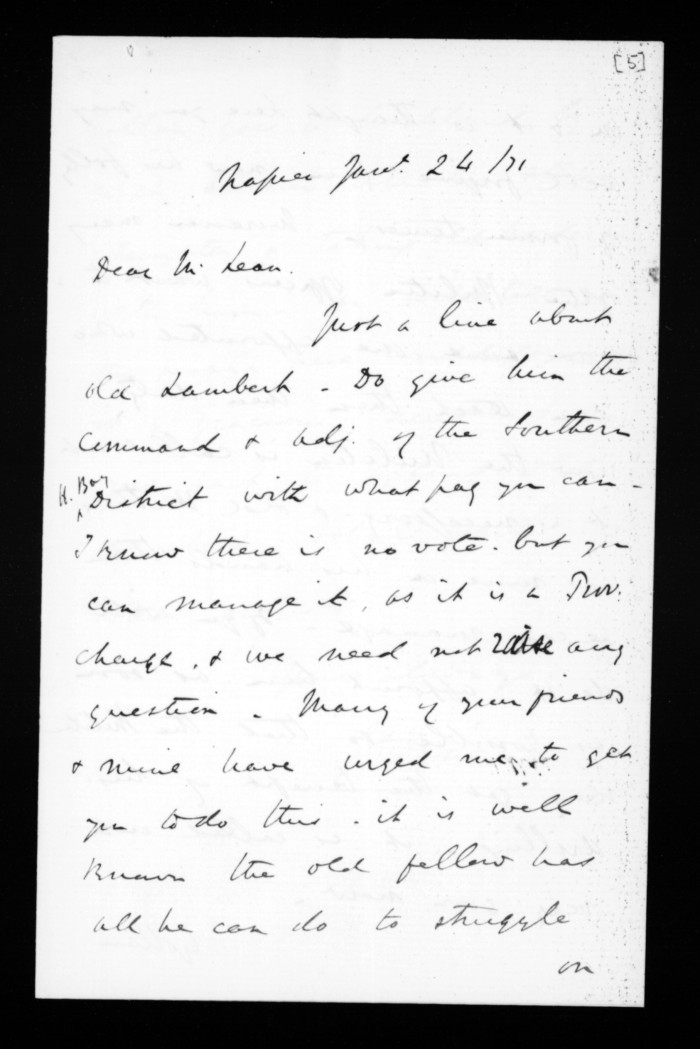 [5]
Napier Jany. 24/71
Dear McLean.
Just a line about
old Lambert - Do give him the
command & adj. of the Southern
H. Bay
District with what pay you can -
I know there is no vote. but you
can manage it, as it is a Prov.
charge, & we need not raise any
question - Many of your friends
& mine have urged me to get
you to do this. it is well
known the old fellow has
all he can do to struggle
on